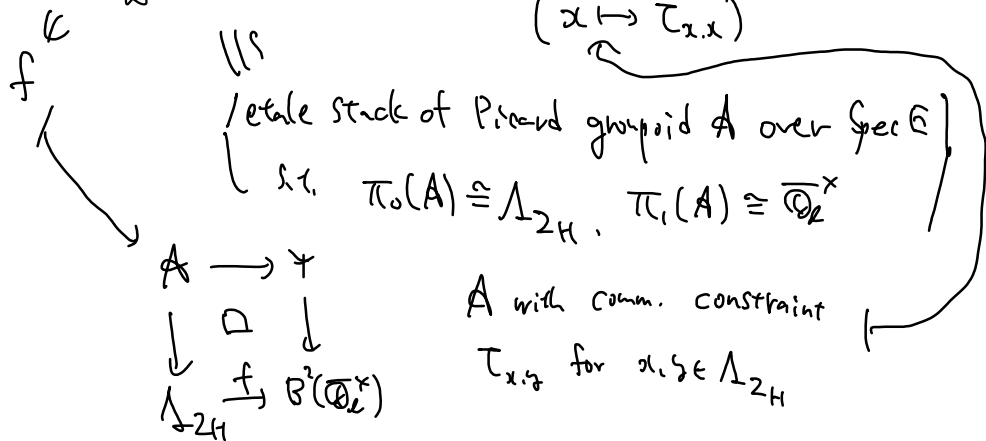 (x ↦ τ_{x,x})
f
etale stack of Picard groupoid A over Spec E
s.t. π₀(A) ≅ Λ_{2H}, π₁(A) ≅ \overline{Q}_ℓ^×
A → *
A with comm. constraint
τ_{x,y} for x,y ∈ Λ_{2H}
Λ_{2H} →^f B²(\overline{Q}_ℓ^×)